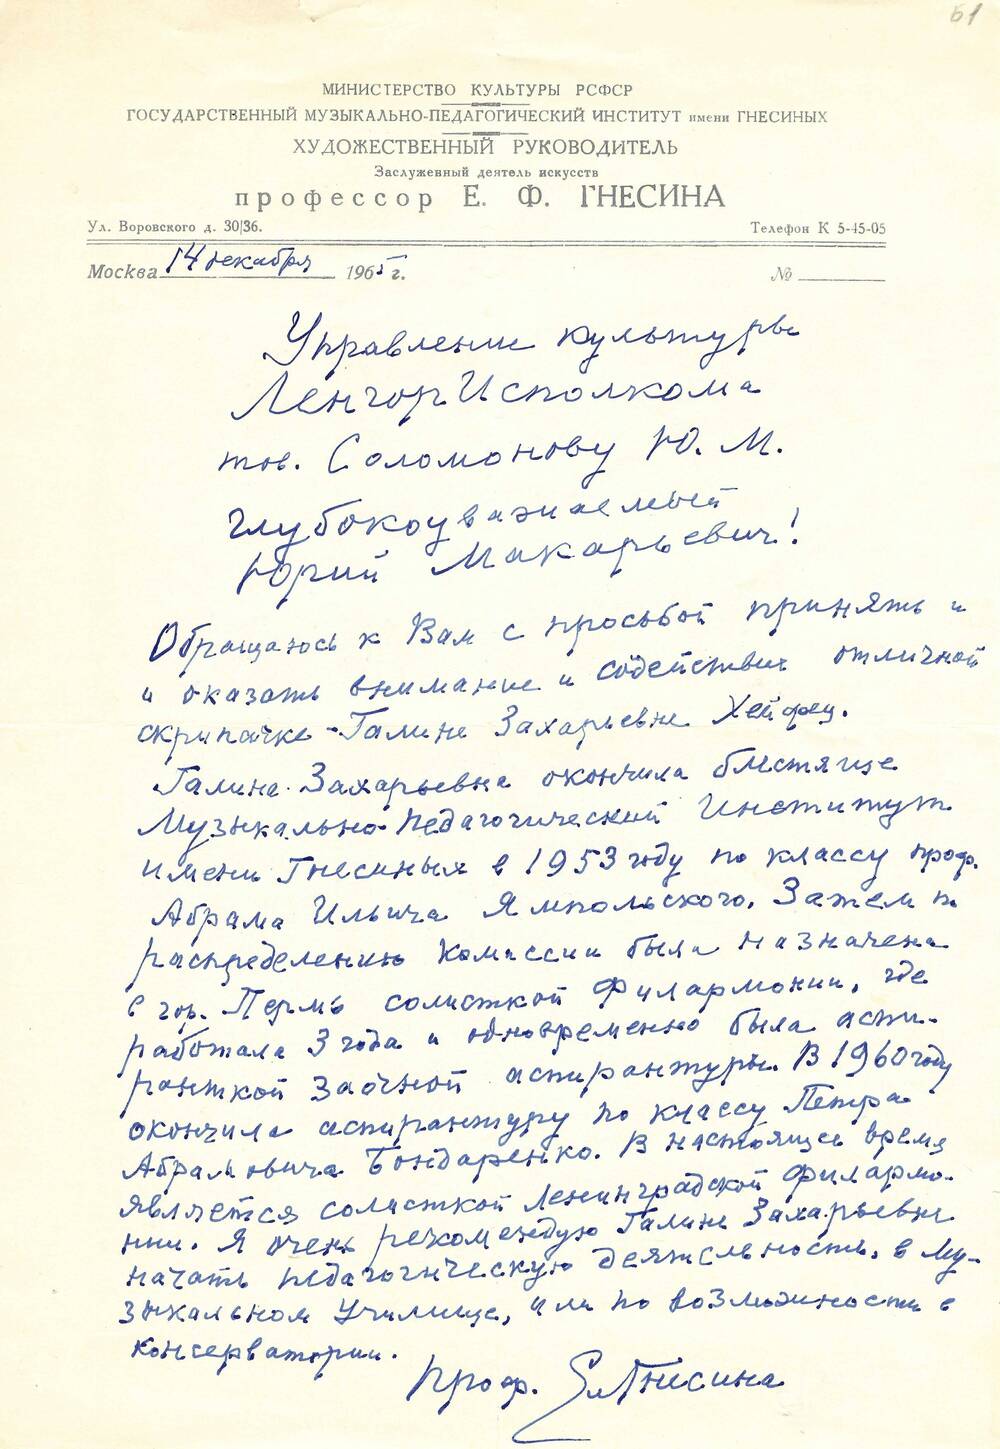 61
МИНИСТЕРСТВО КУЛЬТУРЫ РСФСР
ГОСУДАРСТВЕННЫЙ МУЗЫКАЛЬНО-ПЕДАГОГИЧЕСКИЙ ИНСТИТУТ имени ГНЕСИНЫХ
ХУДОЖЕСТВЕННЫЙ РУКОВОДИТЕЛЬ
Заслуженный деятель искусств
профессор Е. Ф. ГНЕСИНА
Ул. Воровского д. 30|36. Телефон К 5-45-05
Москва 14 декабря 1965 г. №
Управление культуры
ЛенгорИсполкома
тов. Соломонову Ю. М.
Глубокоуважаемый
Юрий Макарьевич!
Обращаюсь к Вам с просьбой принять и
и оказать внимание и содействие отличной
скрипачке - Галине Захарьевне Хейфец.
Галина Захарьевна окончила блестяще
Музыкально-педагогический Институт
имени Гнесиных в 1953 году по классу проф.
Абрама Ильича Ямпольского. Затем по
распределению комиссии была назначена
в гор. Пермь солисткой филармонии, где
работала 3 года и одновременно была аспи-
ранткой заочной аспирантуры. В 1960 году
окончила аспирантуру по классу Петра
Абрамовича Бондаренко. В настоящее время
является солисткой Ленинградской филармо-
нии. Я очень рекомендую Галине Захарьевне
начать педагогическую деятельность в Му-
зыкальном Училище, или по возможности в
консерватории.
проф. Ел Гнесина